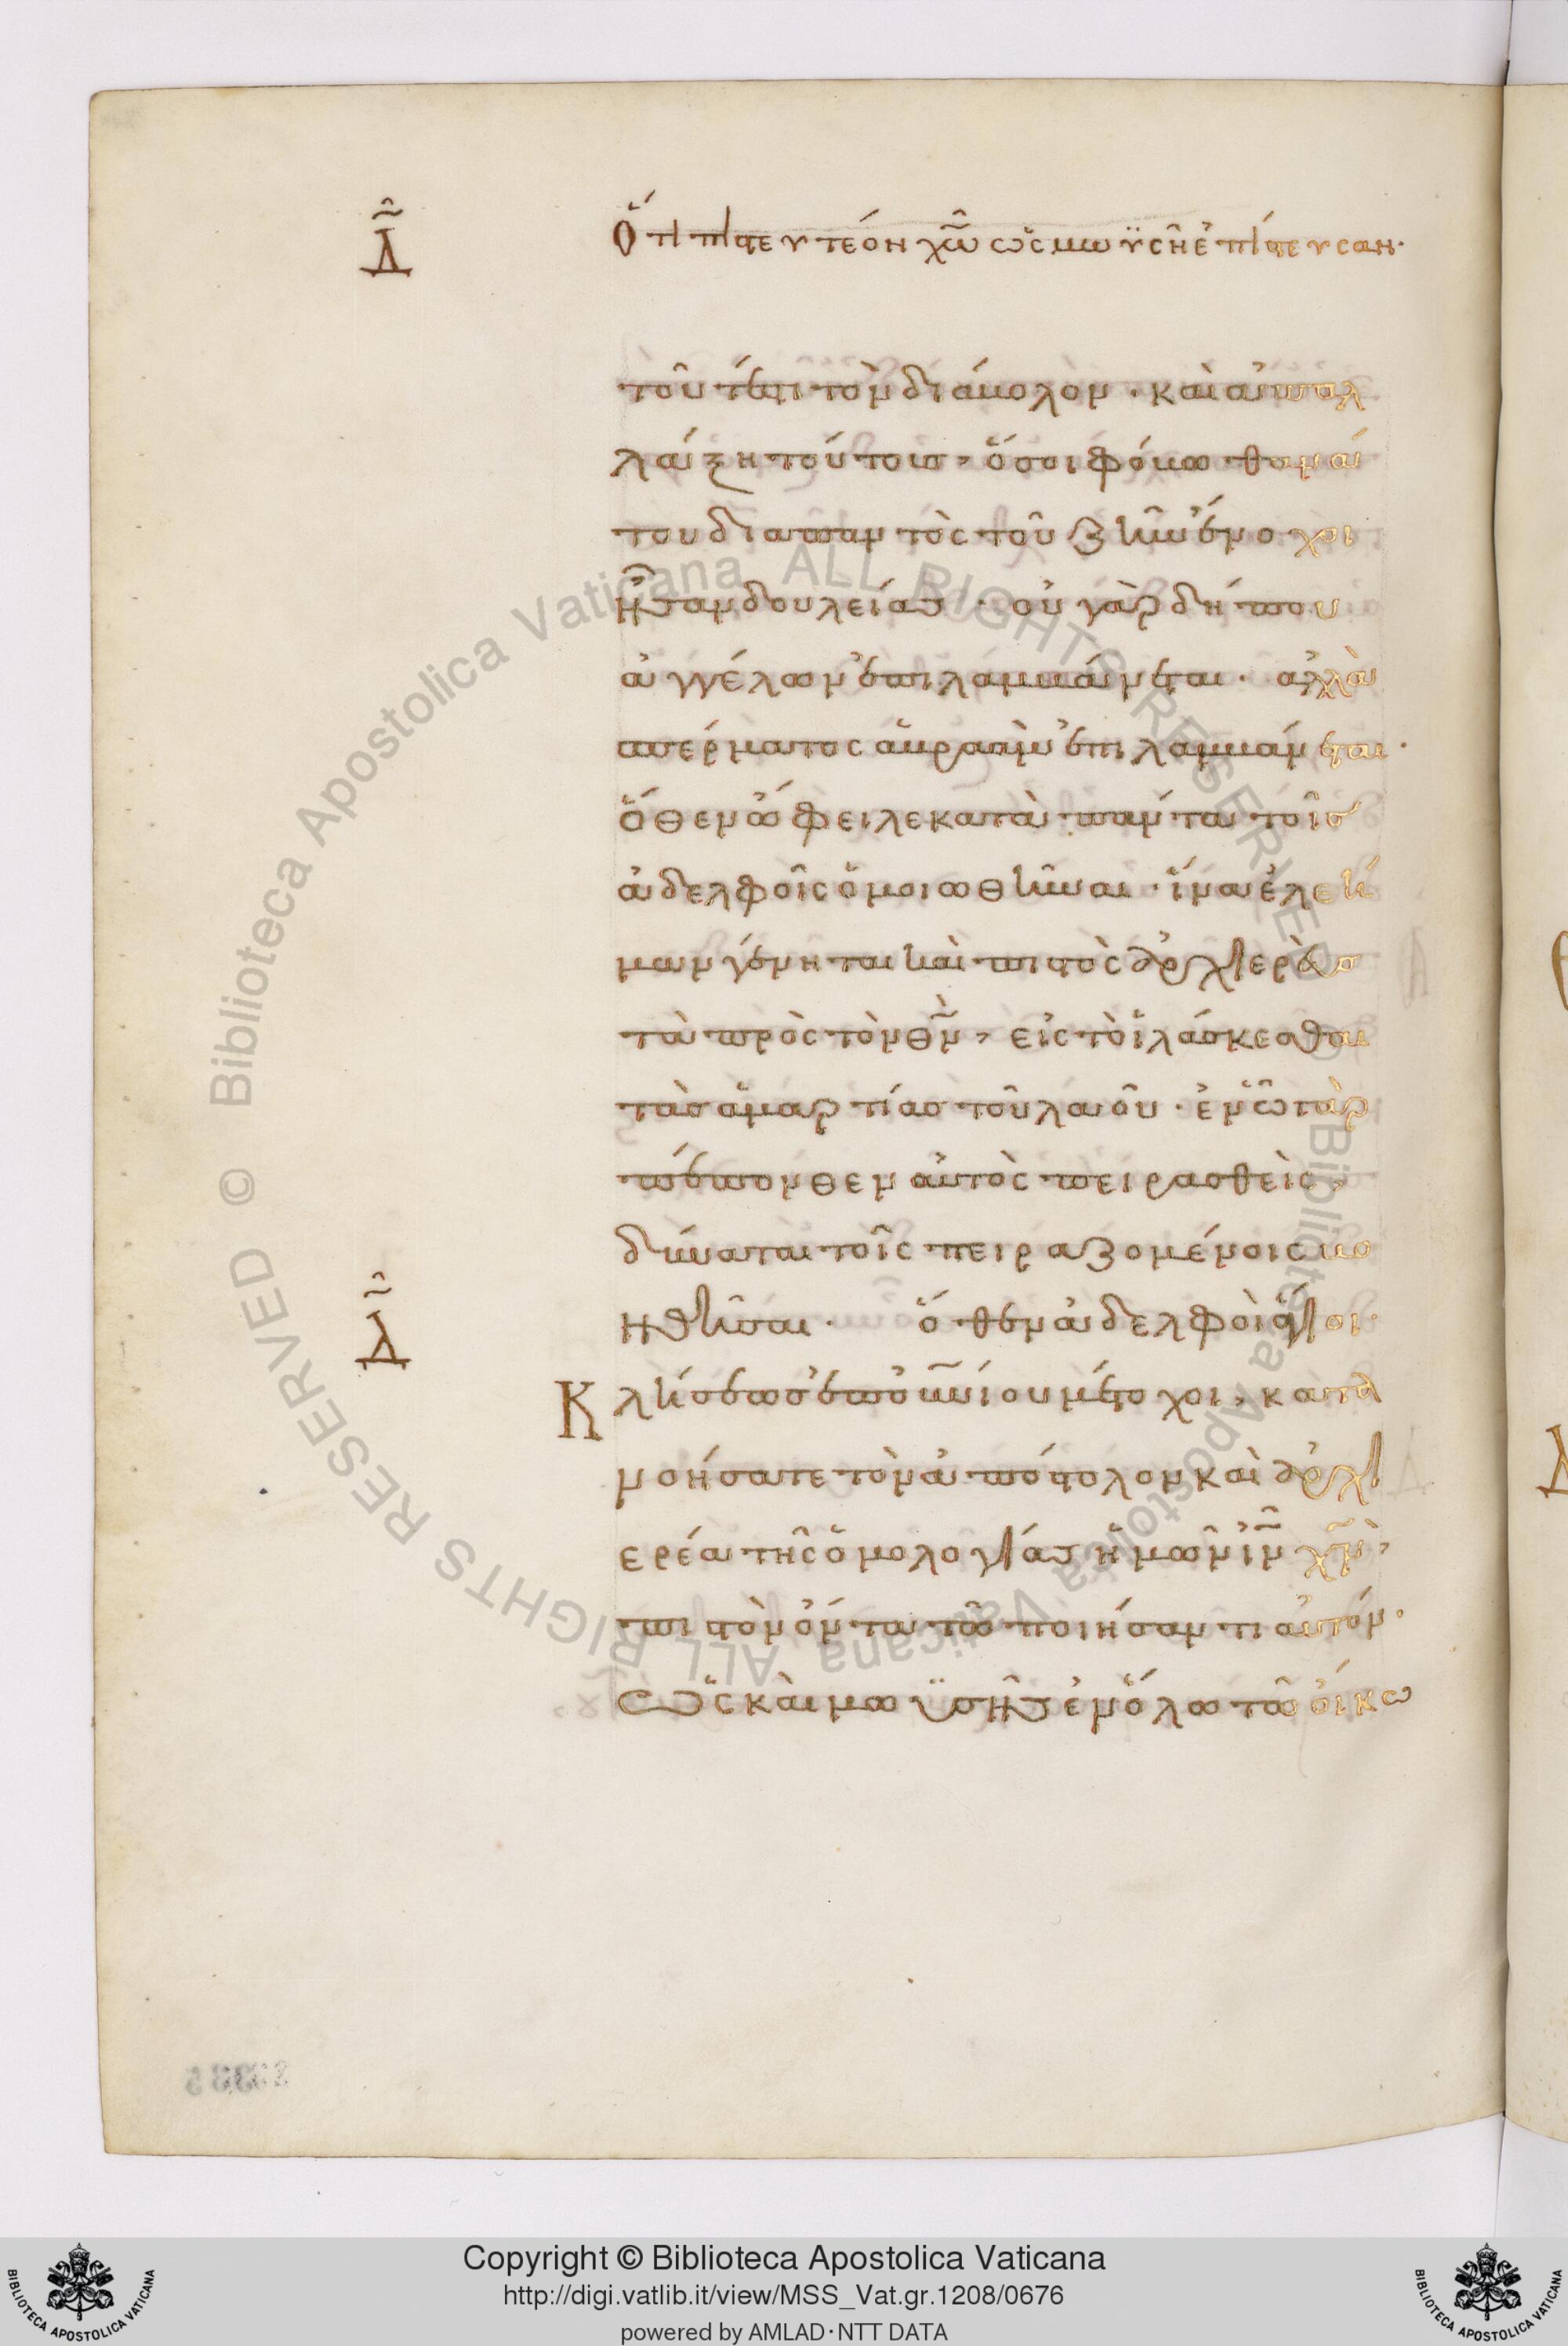 Δ̃
Ὅτι πιστευτέον χ̅ω̅ ὡς μωϋσῆ ἐπίστευσαν·
τοῦτέστι τὸν διάβολον· καὶ ἀπαλ
λάξη τούτους, ὅσοι φόβω θανά
του διαπαντὸς τοῦ ζῆν ἔνοχοι
ἦσαν δουλείας· οὐ γὰρ δήπου
ἀγγέλων ἐπιλαμβάνεται· ἀλλὰ
σπέρματος ἁβραὰμ ἐπιλαμβάνεται·
ὅθεν ὤφειλε κατὰ πάντα τοῖς
ἀδελφοῖς ὁμοιωθῆναι· ἵνα ἐλεή
μων γένηται καὶ πιστὸς ἀρχιερεὺς
τὰ πρὸς τὸν θ̅ν̅, εἰς τὸ ἱλάσκεσθαι
τὰς ἁμαρτίας τοῦ λαοῦ· ἐν ὧ γὰρ
πέπονθεν αὐτὸς πειρασθεὶς,
δύναται τοῖς πειραζομένοις βο
ηθῆσαι· ὅθεν ἀδελφοὶ ἅγιοι·
Δ̃
Κλήσεως ἐπουνίου μέτοχοι, κατα
νοήσατε τὸν ἀπόστολον καὶ ἀρχι
ερέα τῆς ὁμολογίας ἡμῶν ἰ̅ν̅ χ̅ν̅,
πιστὸν ὄντα τῶ ποιήσαντι αὐτόν·
Ὡς καὶ μωϋσῆς ἐν ὅλω τῶ οἴκω
© Biblioteca Apostolica Vaticana ALL RIGHTS RESERVED
© Biblioteca Apostolica Vaticana ALL RIGHTS RESERVED
Copyright © Biblioteca Apostolica Vaticana
http://digi.vatlib.it/view/MSS_Vat.gr.1208/0676
powered by AMLAD·NTT DATA
BIBLIOTECA APOSTOLICA VATICANA
BIBLIOTECA APOSTOLICA VATICANA